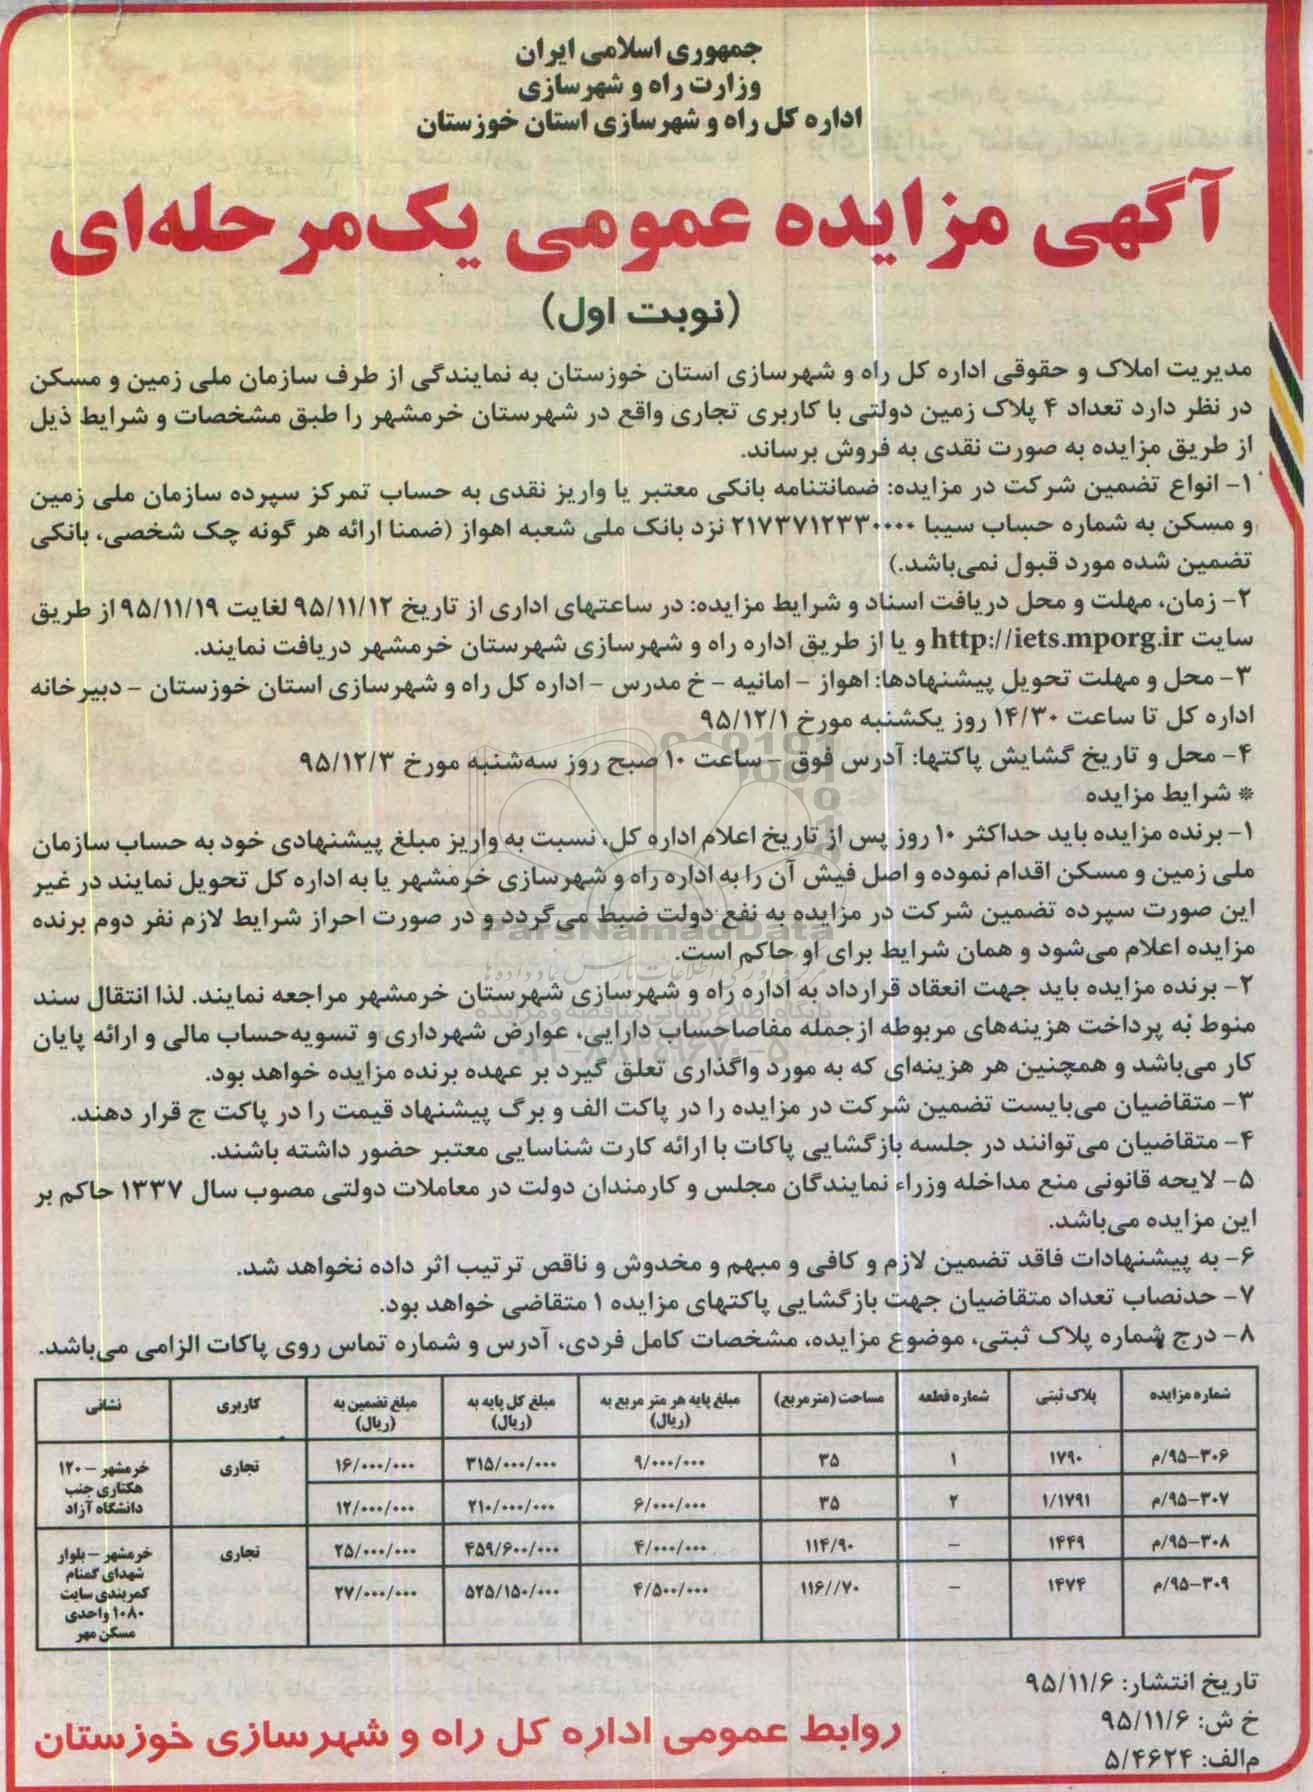 جمهوری اسلامی ایران
وزارت راه و شهرسازی
اداره کل راه و شهرسازی استان خوزستان
آگهی مزایده عمومی یک‌مرحله‌ای
(نوبت اول)
مدیریت املاک و حقوقی اداره کل راه و شهرسازی استان خوزستان به نمایندگی از طرف سازمان ملی زمین و مسکن
در نظر دارد تعداد ۴ پلاک زمین دولتی با کاربری تجاری واقع در شهرستان خرمشهر را طبق مشخصات و شرایط ذیل
از طریق مزایده به صورت نقدی به فروش برساند.
۱- انواع تضمین شرکت در مزایده: ضمانتنامه بانکی معتبر یا واریز نقدی به حساب تمرکز سپرده سازمان ملی زمین
و مسکن به شماره حساب سیبا ۲۱۷۳۷۱۲۳۳۰۰۰۰ نزد بانک ملی شعبه اهواز (ضمنا ارائه هر گونه چک شخصی، بانکی
تضمین شده مورد قبول نمی‌باشد.)
۲- زمان، مهلت و محل دریافت اسناد و شرایط مزایده: در ساعتهای اداری از تاریخ ۹۵/۱۱/۱۲ لغایت ۹۵/۱۱/۱۹ از طریق
سایت http://iets.mporg.ir و یا از طریق اداره راه و شهرسازی شهرستان خرمشهر دریافت نمایند.
۳- محل و مهلت تحویل پیشنهادها: اهواز - امانیه - خ مدرس - اداره کل راه و شهرسازی استان خوزستان - دبیرخانه
اداره کل تا ساعت ۱۴/۳۰ روز یکشنبه مورخ ۹۵/۱۲/۱
۴- محل و تاریخ گشایش پاکتها: آدرس فوق - ساعت ۱۰ صبح روز سه‌شنبه مورخ ۹۵/۱۲/۳
* شرایط مزایده
۱- برنده مزایده باید حداکثر ۱۰ روز پس از تاریخ اعلام اداره کل، نسبت به واریز مبلغ پیشنهادی خود به حساب سازمان
ملی زمین و مسکن اقدام نموده و اصل فیش آن را به اداره راه و شهرسازی خرمشهر یا به اداره کل تحویل نمایند در غیر
این صورت سپرده تضمین شرکت در مزایده به نفع دولت ضبط می‌گردد و در صورت احراز شرایط لازم نفر دوم برنده
مزایده اعلام می‌شود و همان شرایط برای او حاکم است.
۲- برنده مزایده باید جهت انعقاد قرارداد به اداره راه و شهرسازی شهرستان خرمشهر مراجعه نمایند. لذا انتقال سند
منوط به پرداخت هزینه‌های مربوطه ازجمله مفاصاحساب دارایی، عوارض شهرداری و تسویه‌حساب مالی و ارائه پایان
کار می‌باشد و همچنین هر هزینه‌ای که به مورد واگذاری تعلق گیرد بر عهده برنده مزایده خواهد بود.
۳- متقاضیان می‌بایست تضمین شرکت در مزایده را در پاکت الف و برگ پیشنهاد قیمت را در پاکت ج قرار دهند.
۴- متقاضیان می‌توانند در جلسه بازگشایی پاکات با ارائه کارت شناسایی معتبر حضور داشته باشند.
۵- لایحه قانونی منع مداخله وزراء نمایندگان مجلس و کارمندان دولت در معاملات دولتی مصوب سال ۱۳۳۷ حاکم بر
این مزایده می‌باشد.
۶- به پیشنهادات فاقد تضمین لازم و کافی و مبهم و مخدوش و ناقص ترتیب اثر داده نخواهد شد.
۷- حدنصاب تعداد متقاضیان جهت بازگشایی پاکتهای مزایده ۱ متقاضی خواهد بود.
۸- درج شماره پلاک ثبتی، موضوع مزایده، مشخصات کامل فردی، آدرس و شماره تماس روی پاکات الزامی می‌باشد.
شماره مزایده پلاک ثبتی شماره قطعه مساحت (مترمربع) مبلغ پایه هر متر مربع به (ریال) مبلغ کل پایه به (ریال) مبلغ تضمین به (ریال) کاربری نشانی
۹۵-۳۰۶/م ۱۷۹۰ ۱ ۳۵ ۹/۰۰۰/۰۰۰ ۳۱۵/۰۰۰/۰۰۰ ۱۶/۰۰۰/۰۰۰ تجاری خرمشهر - ۱۲۰ هکتاری جنب دانشگاه آزاد
۹۵-۳۰۷/م ۱/۱۷۹۱ ۲ ۳۵ ۶/۰۰۰/۰۰۰ ۲۱۰/۰۰۰/۰۰۰ ۱۲/۰۰۰/۰۰۰
۹۵-۳۰۸/م ۱۴۴۹ - ۱۱۴/۹۰ ۴/۰۰۰/۰۰۰ ۴۵۹/۶۰۰/۰۰۰ ۲۵/۰۰۰/۰۰۰ تجاری خرمشهر - بلوار شهدای گمنام کمربندی سایت ۱۰۸۰ واحدی مسکن مهر
۹۵-۳۰۹/م ۱۴۷۴ - ۱۱۶//۷۰ ۴/۵۰۰/۰۰۰ ۵۲۵/۱۵۰/۰۰۰ ۲۷/۰۰۰/۰۰۰
تاریخ انتشار: ۹۵/۱۱/۶
خ ش: ۹۵/۱۱/۶
م‌الف: ۵/۴۶۲۴
روابط عمومی اداره کل راه و شهرسازی خوزستان
ParsNamadData